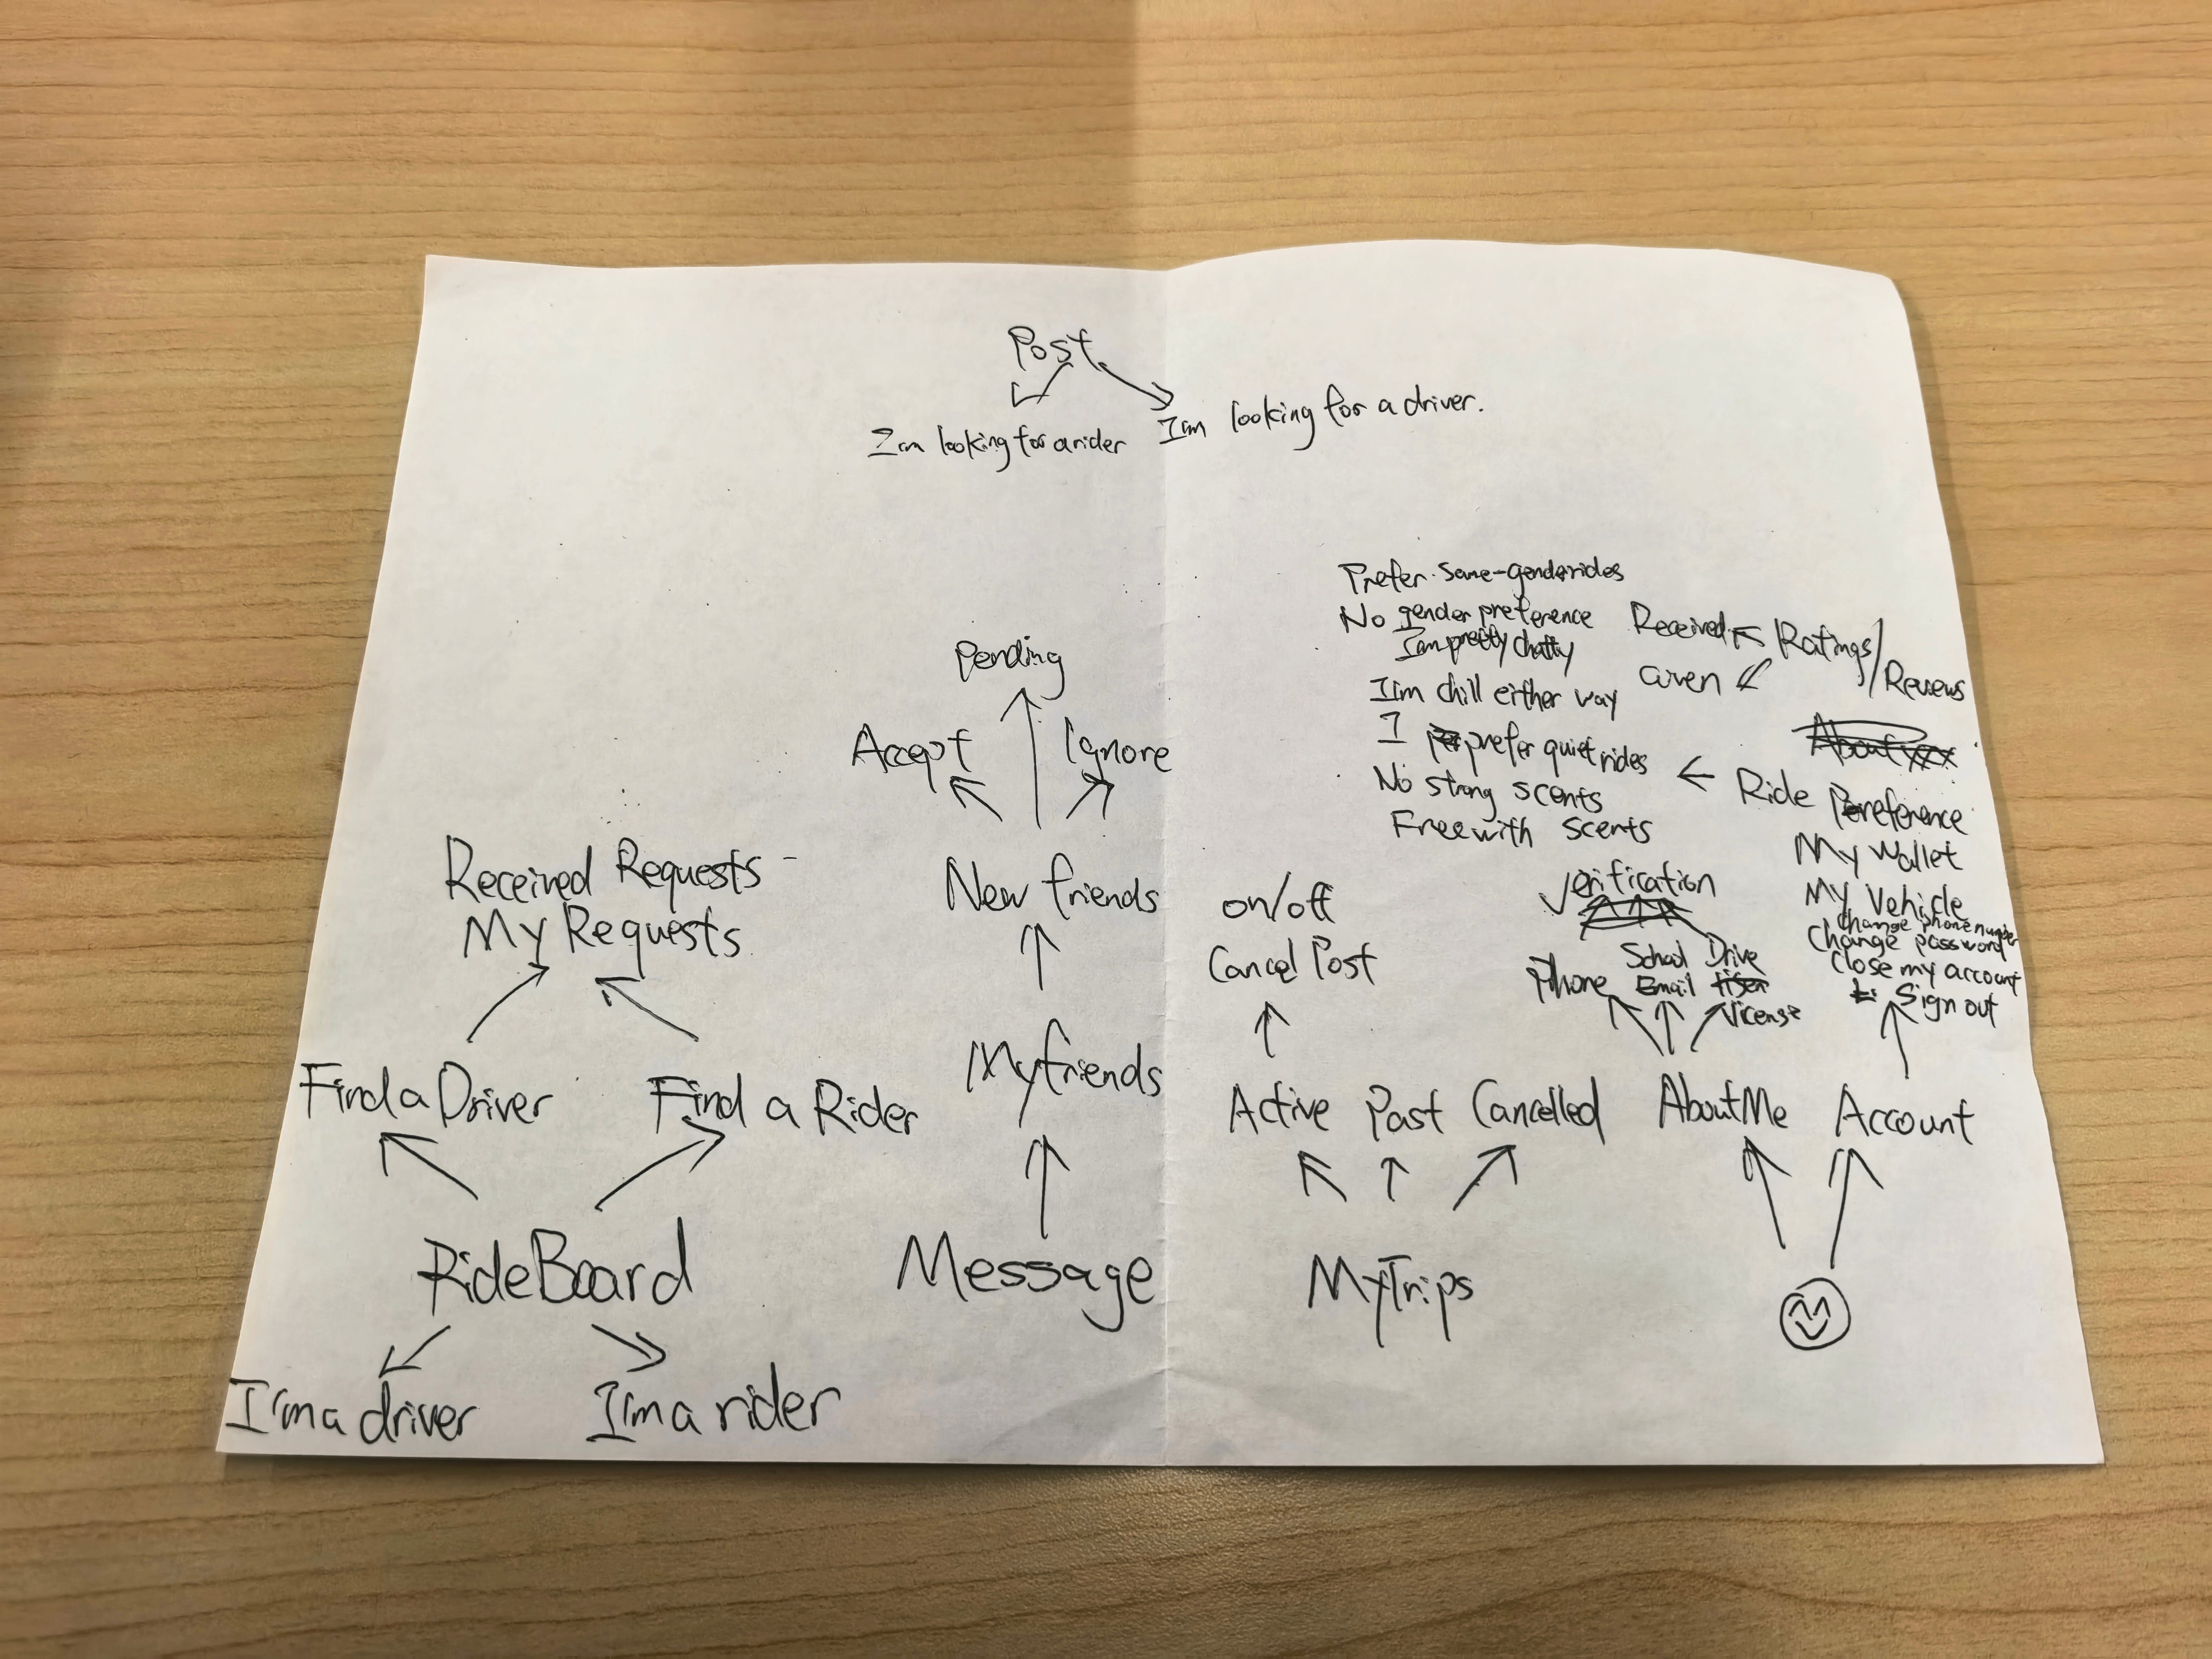 Post
I'm looking for a rider
I'm looking for a driver.
Prefer Same-gender rides
No gender preference
I am pretty chatty
I'm chill either way
I prefer quiet rides
No strong scents
Free with scents
Received
Given
Ratings/
Reviews
Ride Preference
My Wallet
My Vehicle
Change phone number
Change password
Close my account
Sign out
Pending
Accept
Ignore
New friends
My friends
Message
Received Requests
My Requests
Find a Driver
Find a Rider
RideBoard
I'm a driver
I'm a rider
on/off
Cancel Post
Active
Past
Cancelled
My Trips
Verification
Phone
School
Email
Drive
License
About Me
Account